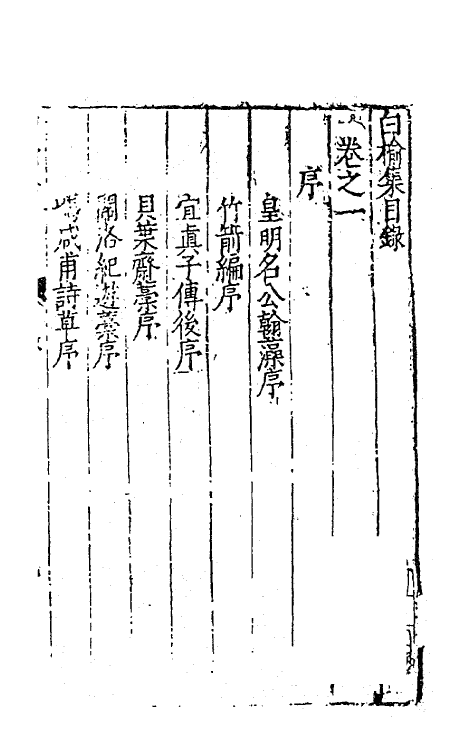 白榆集目錄
卷之一
序
皇明名公翰藻序
竹箭編序
宜眞子傳後序
貝葉齋藁序
關洛紀遊藁序
咸甫詩草序